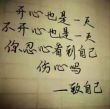 开心也是一天
不开心也是一天
你忍心看到自己
伤心吗
一致自己